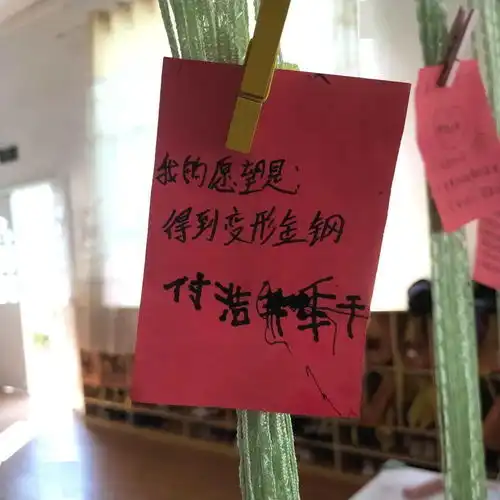 我的愿望是:
得到变形金钢
付浩